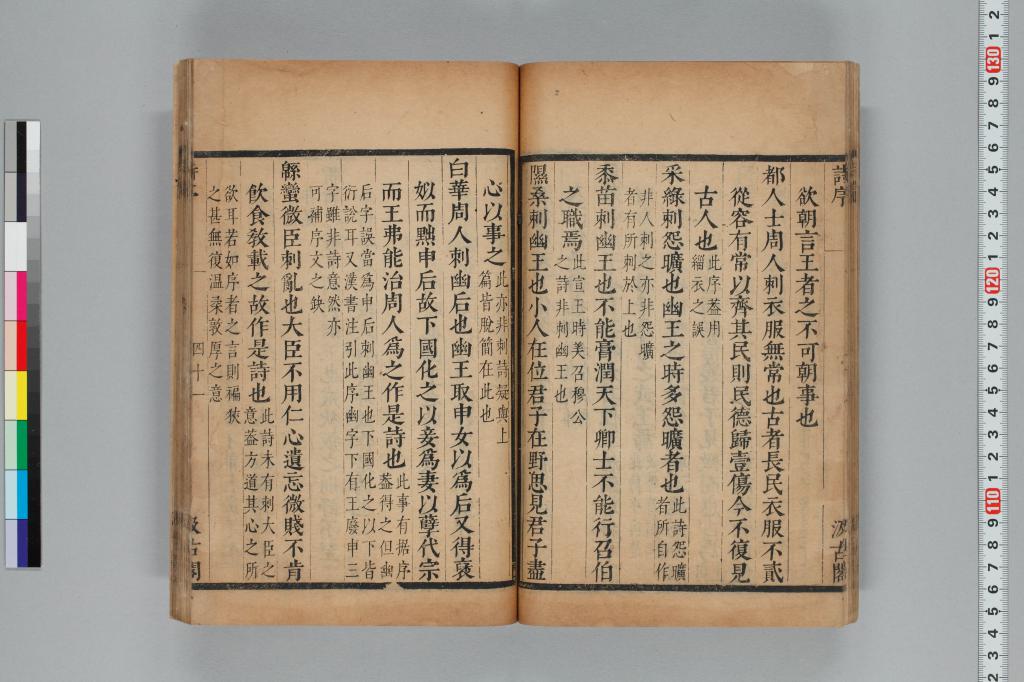 詩序
欲朝言王者之不可朝事也
都人士周人刺衣服無常也古者長民衣服不貳
從容有常以齊其民則民德歸壹傷今不復見
古人也此序蓋用緇衣之誤
采綠刺怨曠也幽王之時多怨曠者也此詩怨曠者所自作
非人刺之亦非怨曠者有所刺於上也
黍苗刺幽王也不能膏潤天下卿士不能行召伯
之職焉此宣王時美召穆公之詩非刺幽王也
隰桑刺幽王也小人在位君子在野思見君子盡
心以事之此亦非刺詩疑與上篇皆脫簡在此也
白華周人刺幽后也幽王取申女以爲后又得襃
姒而黜申后故下國化之以妾爲妻以孽代宗
而王弗能治周人爲之作是詩也此事有據序蓋得之但幽
后字誤當爲申后刺幽王也下國化之以下皆衍說耳又漢書注引此序幽字下有王廢申三
字雖非詩意然亦可補序文之缺
緜蠻微臣刺亂也大臣不用仁心遺忘微賤不肯
飲食敎載之故作是詩也此詩未有刺大臣之意蓋方道其心之所
欲耳若如序者之言則褊狹之甚無復溫柔敦厚之意
四十一
汲古閣